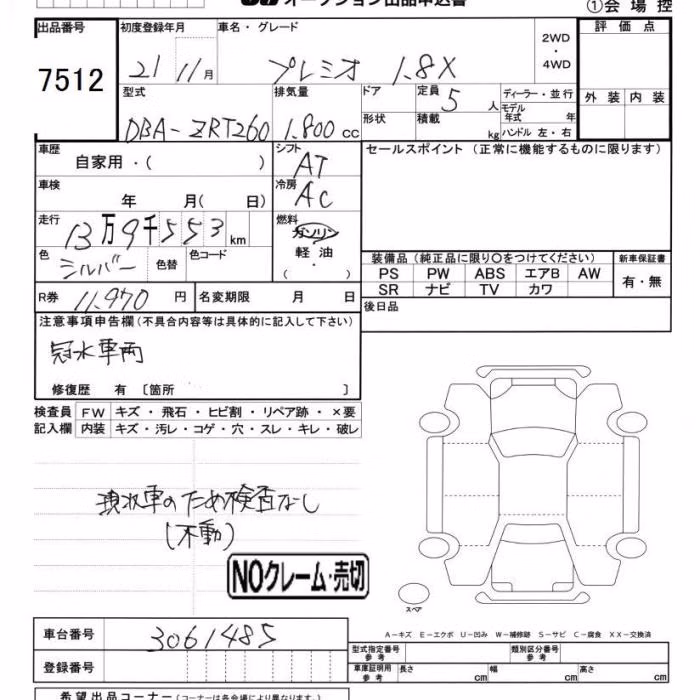 オークション出品申込書
①会場控
出品番号 初度登録年月 車名・グレード 評価点
7512 21 11月 プレミオ 1.8X 2WD・4WD
型式 排気量 ドア 定員 5人 ディーラー・並行 外装 内装
DBA-ZRT260 1.800cc 形状 積載 kg モデル年式 年
ハンドル 左・右
車歴 自家用・( ) シフト AT セールスポイント(正常に機能するものに限ります)
車検 年 月( 日) 冷房 AC
走行 13万9千553km 燃料 ガソリン
軽油
( ・ )
色 シルバー 色替 色コード
装備品(純正品に限り〇をつけてください) 新車保証書
PS PW ABS エアB AW 有・無
SR ナビ TV カワ
R券 11,970円 名変期限 月 日 後日品
注意事項申告欄(不具合内容等は具体的に記入して下さい)
冠水車両
修復歴 有〔箇所 〕
検査員 FW キズ・飛石・ヒビ割・リペア跡・×要
記入欄 内装 キズ・汚レ・コゲ・穴・スレ・キレ・破レ
のため検査なし
(不動)
NOクレーム・売切
スペア
A-キズ E-エクボ U-凹み W-補修跡 S-サビ C-腐食 XX-交換済
車台番号 3061485
型式指定番号 参考 類別区分番号 参考
登録番号
車庫証明用 参考 長さ cm 幅 cm 高さ cm
希望出品コーナー(コーナーは各会場により異なります。)